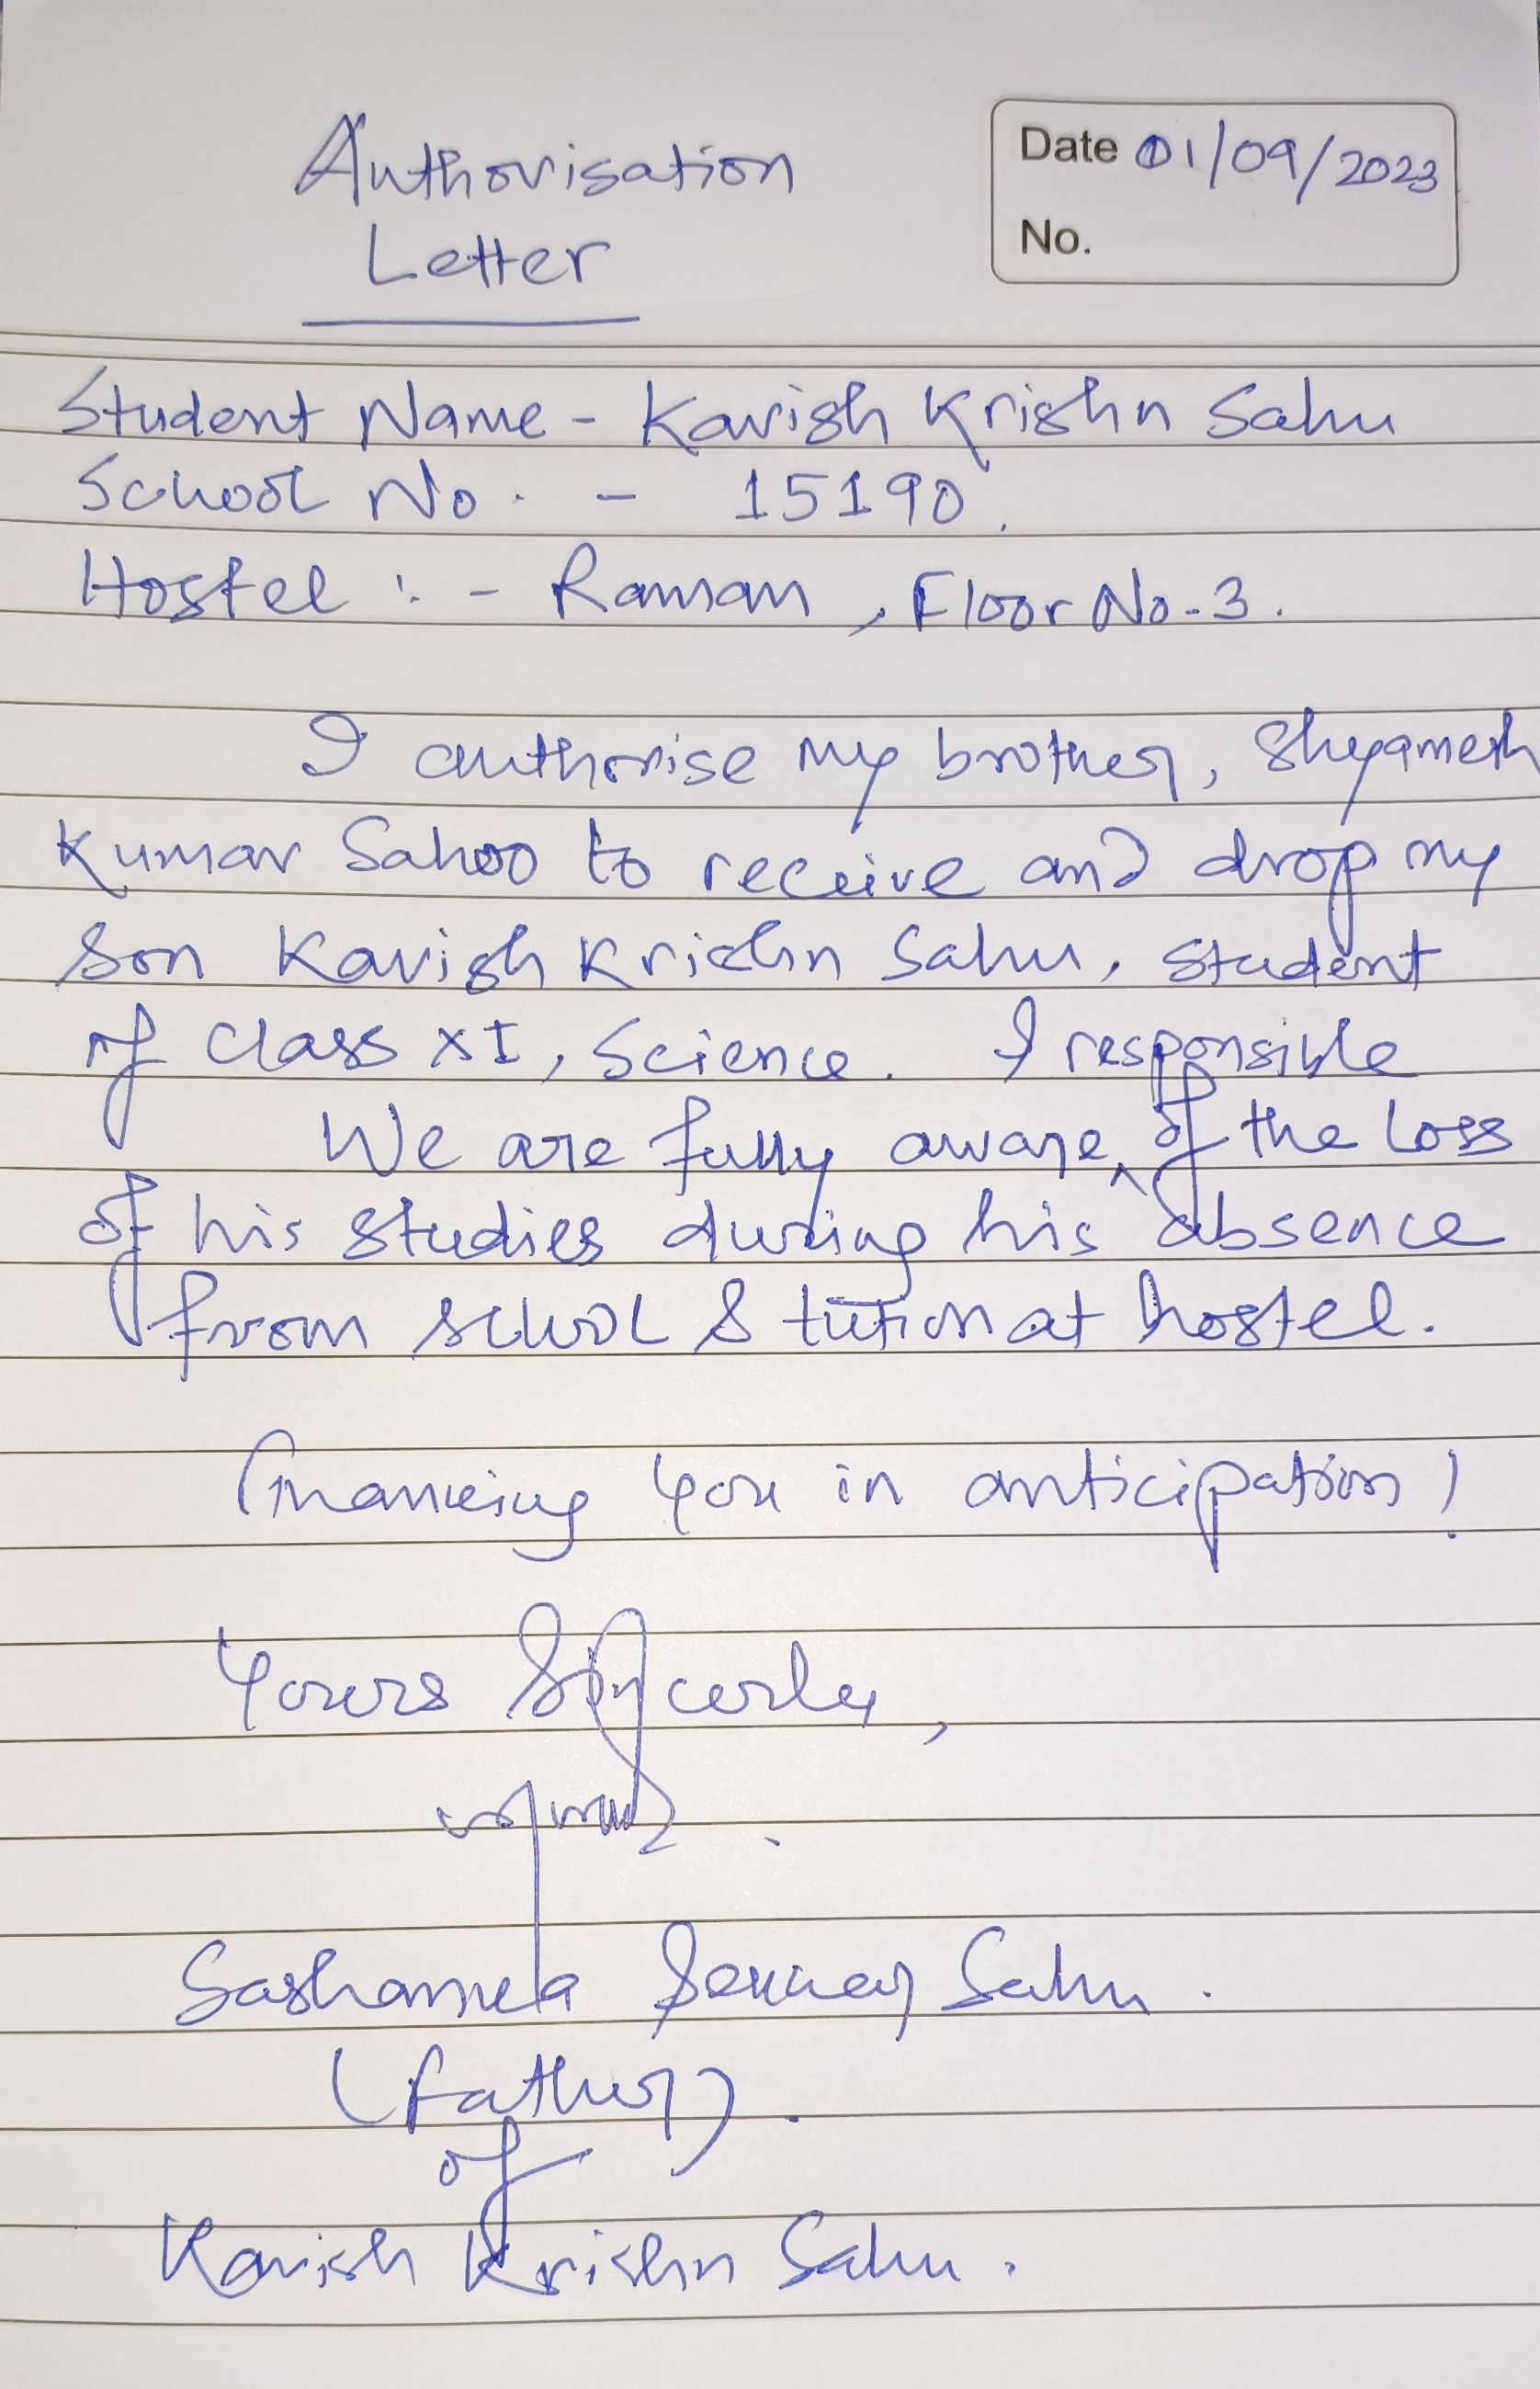 Authorisation
Letter
Date 01/09/2023
No.
Student Name - Kavish Krishn Sahu
School No. - 15190.
Hostel :- Raman, Floor No-3.
I authorise my brother, Shyamesh
Kumar Sahoo to receive and drop my
son Kavish Krishn Sahu, student
of class XI, Science. & responsible
We are fully aware ^ of the loss
of his studies during his absence
from school & tution at hostel.
Thanking you in anticipation!
Yours Sincerly,
Sahu.
(Father).
of
Kavish Krishn Sahu.